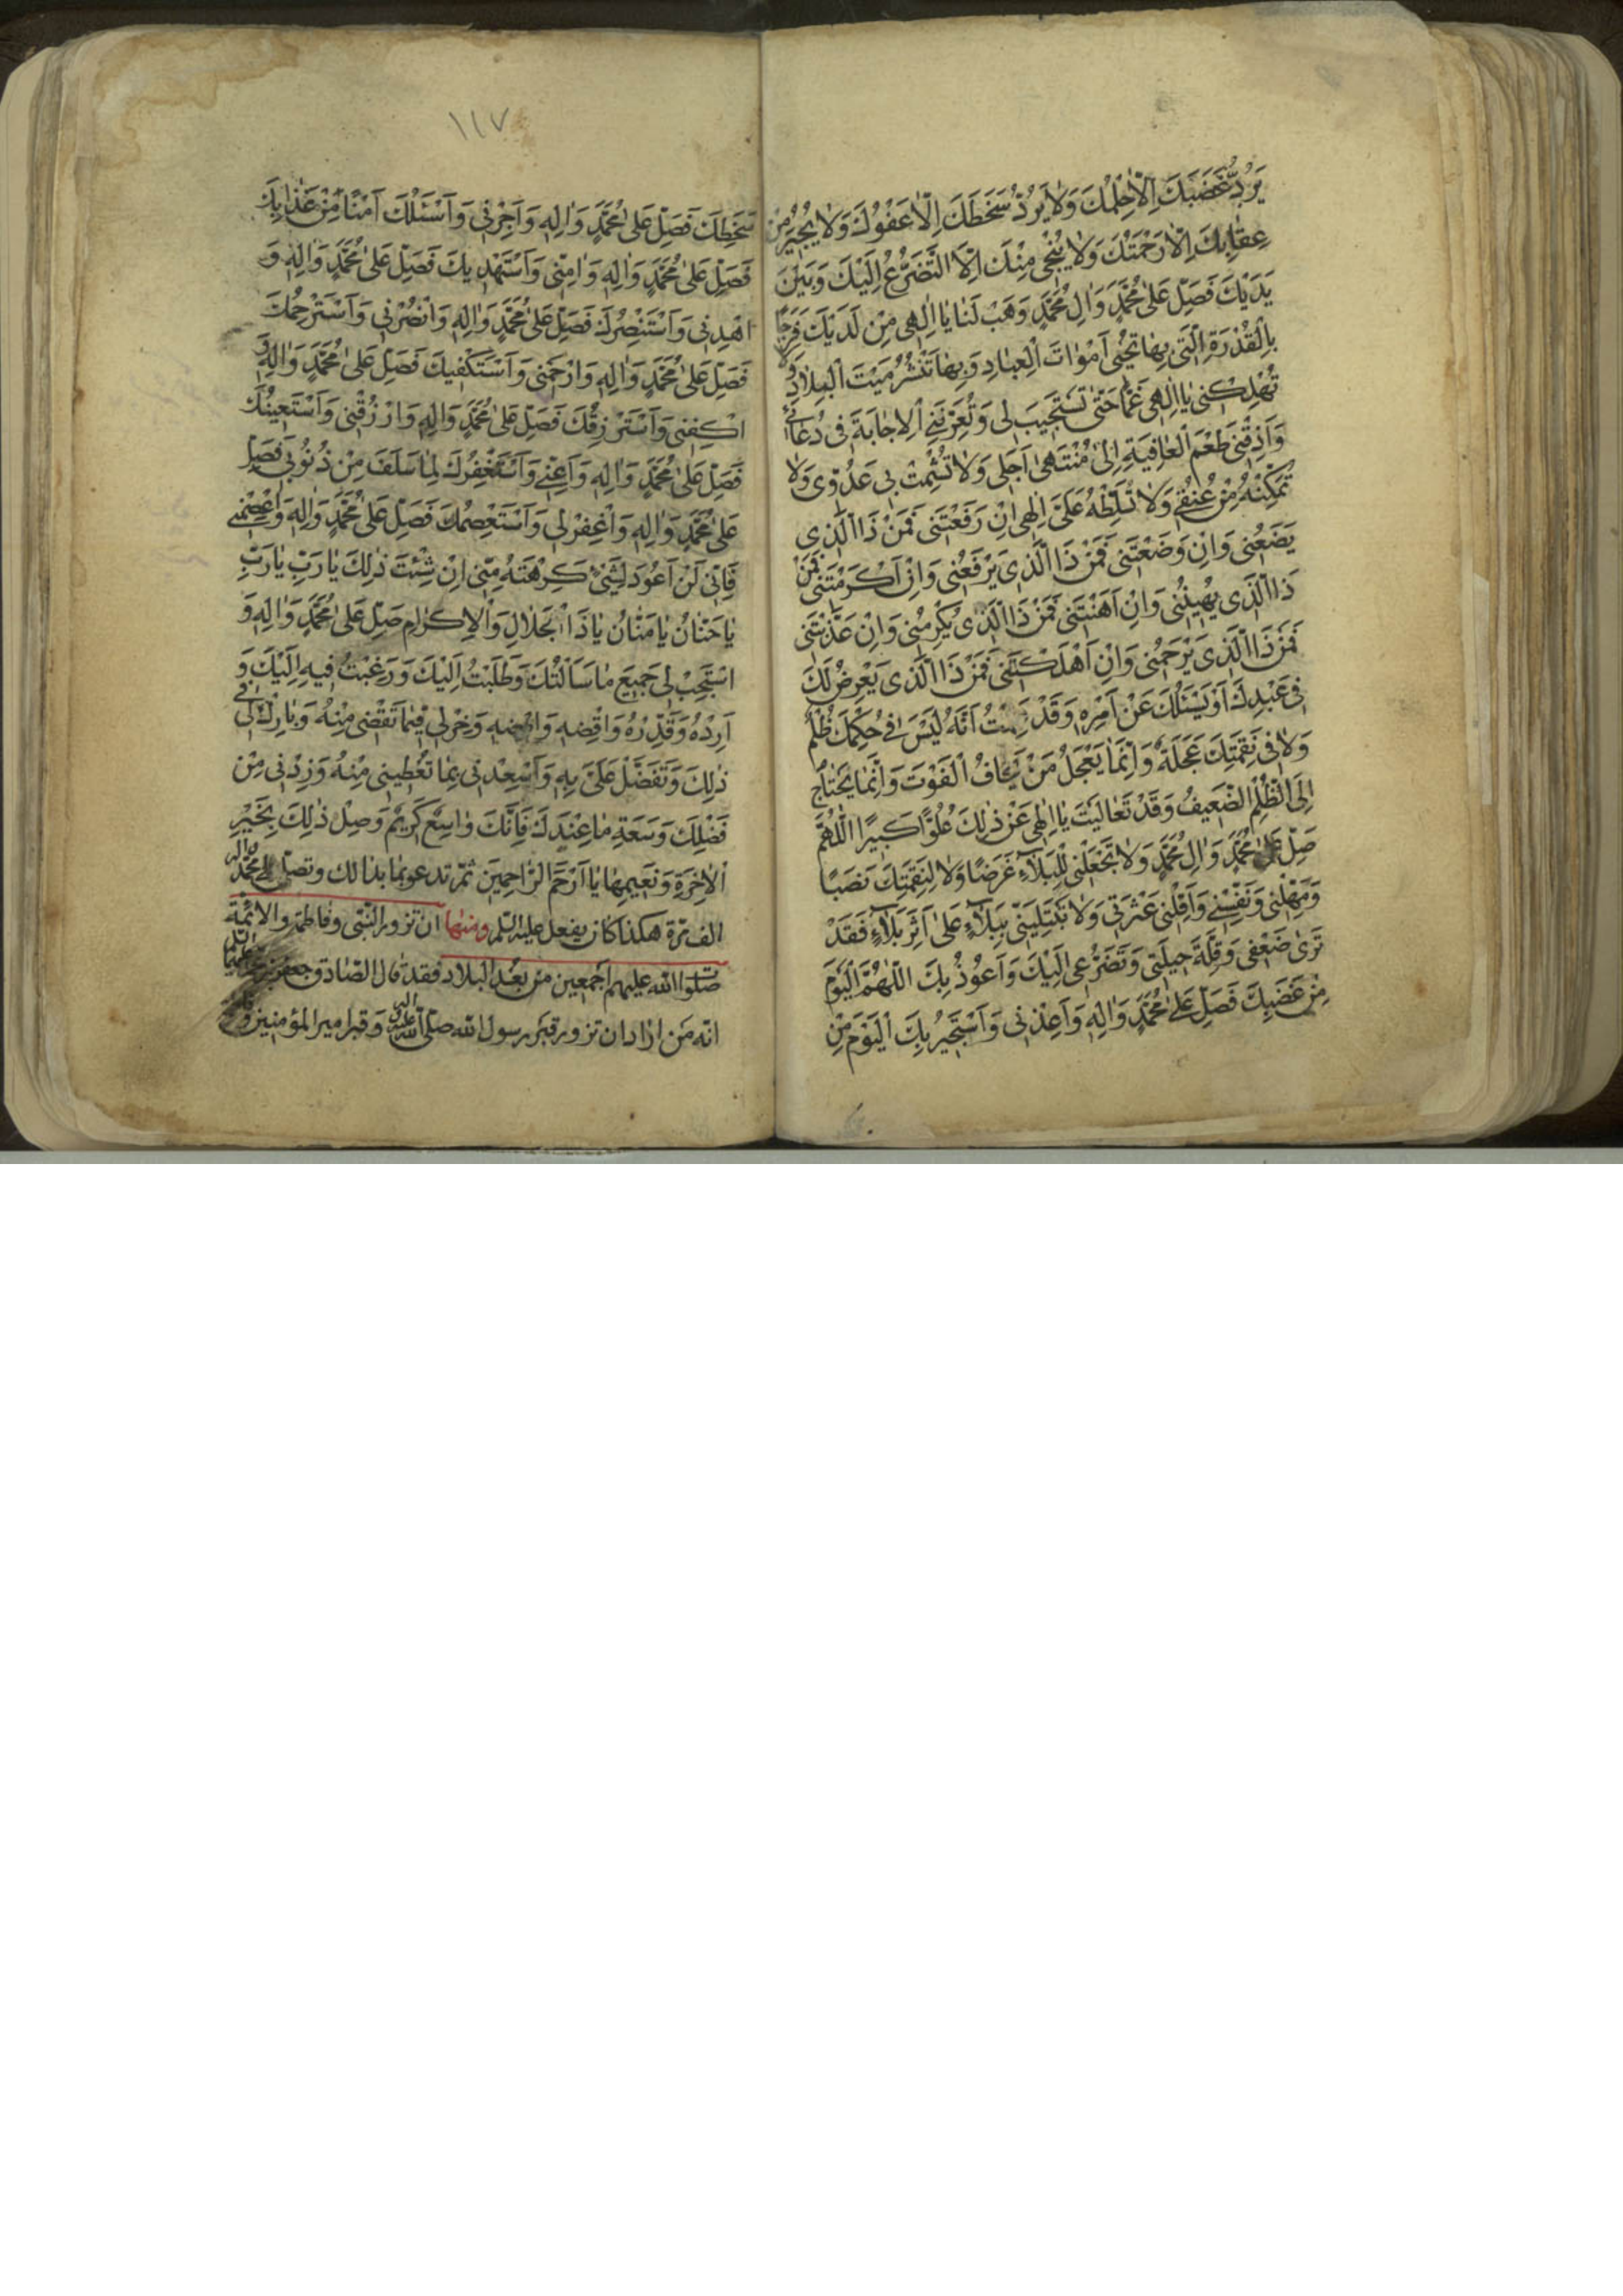 يَرُدُّ غَضَبَكَ اِلّٰا حِلْمُكَ وَلٰا يَرُدُّ سَخَطَكَ اِلّٰا عَفْوُكَ وَلٰا يُجِيرُ مِنْ
عِقٰابِكَ اِلّٰا رَحْمَتُكَ وَلٰا يُنْجِى مِنْكَ اِلَّا التَّضَرُّعُ اِلَيْكَ وَبَيْنَ
يَدَيْكَ فَصَلِّ عَلىٰ مُحَمَّدٍ وَاٰلِ مُحَمَّدٍ وَهَبْ لَنٰا يٰا اِلٰهِى مِنْ لَدَيْكَ فَرَجًا
بِالْقُدْرَةِ الَّتِى بِهٰا تُحْيِى اَمْوٰاتَ الْعِبٰادِ وَبِهٰا تَنْشُرُ مَيْتَ الْبِلٰادِ وَلٰا
تُهْلِكْنِى يٰا اِلٰهِى غَمًّا حَتّٰى تَسْتَجِيبَ لِى وَتُعَرِّفَنِى الْاِجٰابَةَ فِى دُعٰائِى
وَاَذِقْنِى طَعْمَ الْعٰافِيَةِ اِلىٰ مُنْتَهىٰ اَجَلِى وَلٰا تُشْمِتْ بِى عَدُوِّى وَلٰا
تُمَكِّنْهُ مِنْ عُنُقِى وَلٰا تُسَلِّطْهُ عَلَىَّ اِلٰهِى اِنْ رَفَعْتَنِى فَمَنْ ذَا الَّذِى
يَضَعُنِى وَاِنْ وَضَعْتَنِى فَمَنْ ذَا الَّذِى يَرْفَعُنِى وَاِنْ اَكْرَمْتَنِى فَمَنْ
ذَا الَّذِى يُهِينُنِى وَاِنْ اَهَنْتَنِى فَمَنْ ذَا الَّذِى يُكْرِمُنِى وَاِنْ عَذَّبْتَنِى
فَمَنْ ذَا الَّذِى يَرْحَمُنِى وَاِنْ اَهْلَكْتَنِى فَمَنْ ذَا الَّذِى يَعْرِضُ لَكَ
فِى عَبْدِكَ اَوْ يَسْئَلُكَ عَنْ اَمْرِهِ وَقَدْ عَلِمْتُ اَنَّهُ لَيْسَ فِى حُكْمِكَ ظُلْمٌ
وَلٰا فِى نَقِمَتِكَ عَجَلَةٌ وَاِنَّمٰا يَعْجَلُ مَنْ يَخٰافُ الْفَوْتَ وَاِنَّمٰا يَحْتٰاجُ
اِلَى الظُّلْمِ الضَّعِيفُ وَقَدْ تَعٰالَيْتَ يٰا اِلٰهِى عَنْ ذٰلِكَ عُلُوًّا كَبِيرًا اللّٰهُمَّ
صَلِّ عَلىٰ مُحَمَّدٍ وَاٰلِ مُحَمَّدٍ وَلٰا تَجْعَلْنِى لِلْبَلٰاءِ غَرَضًا وَلٰا لِنَقِمَتِكَ نَصَبًا
وَمَهِّلْنِى وَنَفِّسْنِى وَاَقِلْنِى عَثْرَتِى وَلٰا تَبْتَلِيَنِّى بِبَلٰاءٍ عَلىٰ اَثَرِ بَلٰاءٍ فَقَدْ
تَرىٰ ضَعْفِى وَقِلَّةَ حِيلَتِى وَتَضَرُّعِى اِلَيْكَ وَاَعُوذُ بِكَ اللّٰهُمَّ الْيَوْمَ
مِنْ غَضَبِكَ فَصَلِّ عَلىٰ مُحَمَّدٍ وَاٰلِهِ وَاَعِذْنِى وَاَسْتَجِيرُ بِكَ الْيَوْمَ مِنْ
١١٧
سَخَطِكَ فَصَلِّ عَلىٰ مُحَمَّدٍ وَاٰلِهِ وَاَجِرْنِى وَاَسْئَلُكَ اَمْنًا مِنْ عَذٰابِكَ
فَصَلِّ عَلىٰ مُحَمَّدٍ وَاٰلِهِ وَاٰمِنِّى وَاَسْتَهْدِيكَ فَصَلِّ عَلىٰ مُحَمَّدٍ وَاٰلِهِ وَ
اهْدِنِى وَاَسْتَنْصِرُكَ فَصَلِّ عَلىٰ مُحَمَّدٍ وَاٰلِهِ وَانْصُرْنِى وَاَسْتَرْحِمُكَ
فَصَلِّ عَلىٰ مُحَمَّدٍ وَاٰلِهِ وَارْحَمْنِى وَاَسْتَكْفِيكَ فَصَلِّ عَلىٰ مُحَمَّدٍ وَاٰلِهِ وَ
اكْفِنِى وَاَسْتَرْزِقُكَ فَصَلِّ عَلىٰ مُحَمَّدٍ وَاٰلِهِ وَارْزُقْنِى وَاَسْتَعِينُكَ
فَصَلِّ عَلىٰ مُحَمَّدٍ وَاٰلِهِ وَاَعِنِّى وَاَسْتَغْفِرُكَ لِمٰا سَلَفَ مِنْ ذُنُوبِى فَصَلِّ
عَلىٰ مُحَمَّدٍ وَاٰلِهِ وَاغْفِرْ لِى وَاَسْتَعْصِمُكَ فَصَلِّ عَلىٰ مُحَمَّدٍ وَاٰلِهِ وَاعْصِمْنِى
فَاِنِّى لَنْ اَعُودَ لِشَىْءٍ كَرِهْتَهُ مِنِّى اِنْ شِئْتَ ذٰلِكَ يٰا رَبِّ يٰا رَبِّ
يٰا حَنّٰانُ يٰا مَنّٰانُ يٰا ذَا الْجَلٰالِ وَالْاِكْرٰامِ صَلِّ عَلىٰ مُحَمَّدٍ وَاٰلِهِ وَ
اسْتَجِبْ لِى جَمِيعَ مٰا سَاَلْتُكَ وَطَلَبْتُ اِلَيْكَ وَرَغِبْتُ فِيهِ اِلَيْكَ وَ
اَرِدْهُ وَقَدِّرْهُ وَاقْضِهِ وَامْضِهِ وَخِرْ لِى فِيمٰا تَقْضِى مِنْهُ وَبٰارِكْ لِى فِى
ذٰلِكَ وَتَفَضَّلْ عَلَىَّ بِهِ وَاَسْعِدْنِى بِمٰا تُعْطِينِى مِنْهُ وَزِدْنِى مِنْ
فَضْلِكَ وَسَعَةِ مٰا عِنْدَكَ فَاِنَّكَ وٰاسِعٌ كَرِيمٌ وَصِلْ ذٰلِكَ بِخَيْرِ
الْاٰخِرَةِ وَنَعِيمِهٰا يٰا اَرْحَمَ الرّٰاحِمِينَ ثم تدعو بما بدا لك وتصلى على محمد واله
الف مرة هكذا كان يفعل عليه السلم ومنها ان تزور النبى وفاطمة والائمة
صلوات الله عليهم اجمعين من بعد البلاد فقد قال الصادق جعفر بن محمد عليهما السلم
انه من اراد ان تزور قبر رسول الله صلى الله عليه واله وقبر امير المؤمنين و